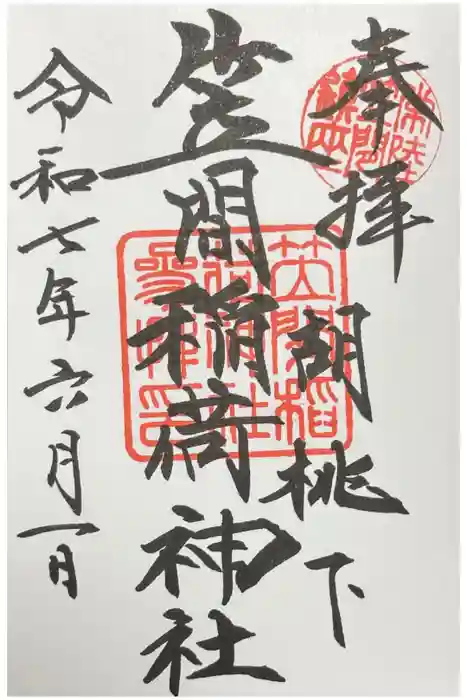 奉拝
胡桃下
笠間稲荷神社
令和七年六月一日
笠間稲
荷神社
参拝印